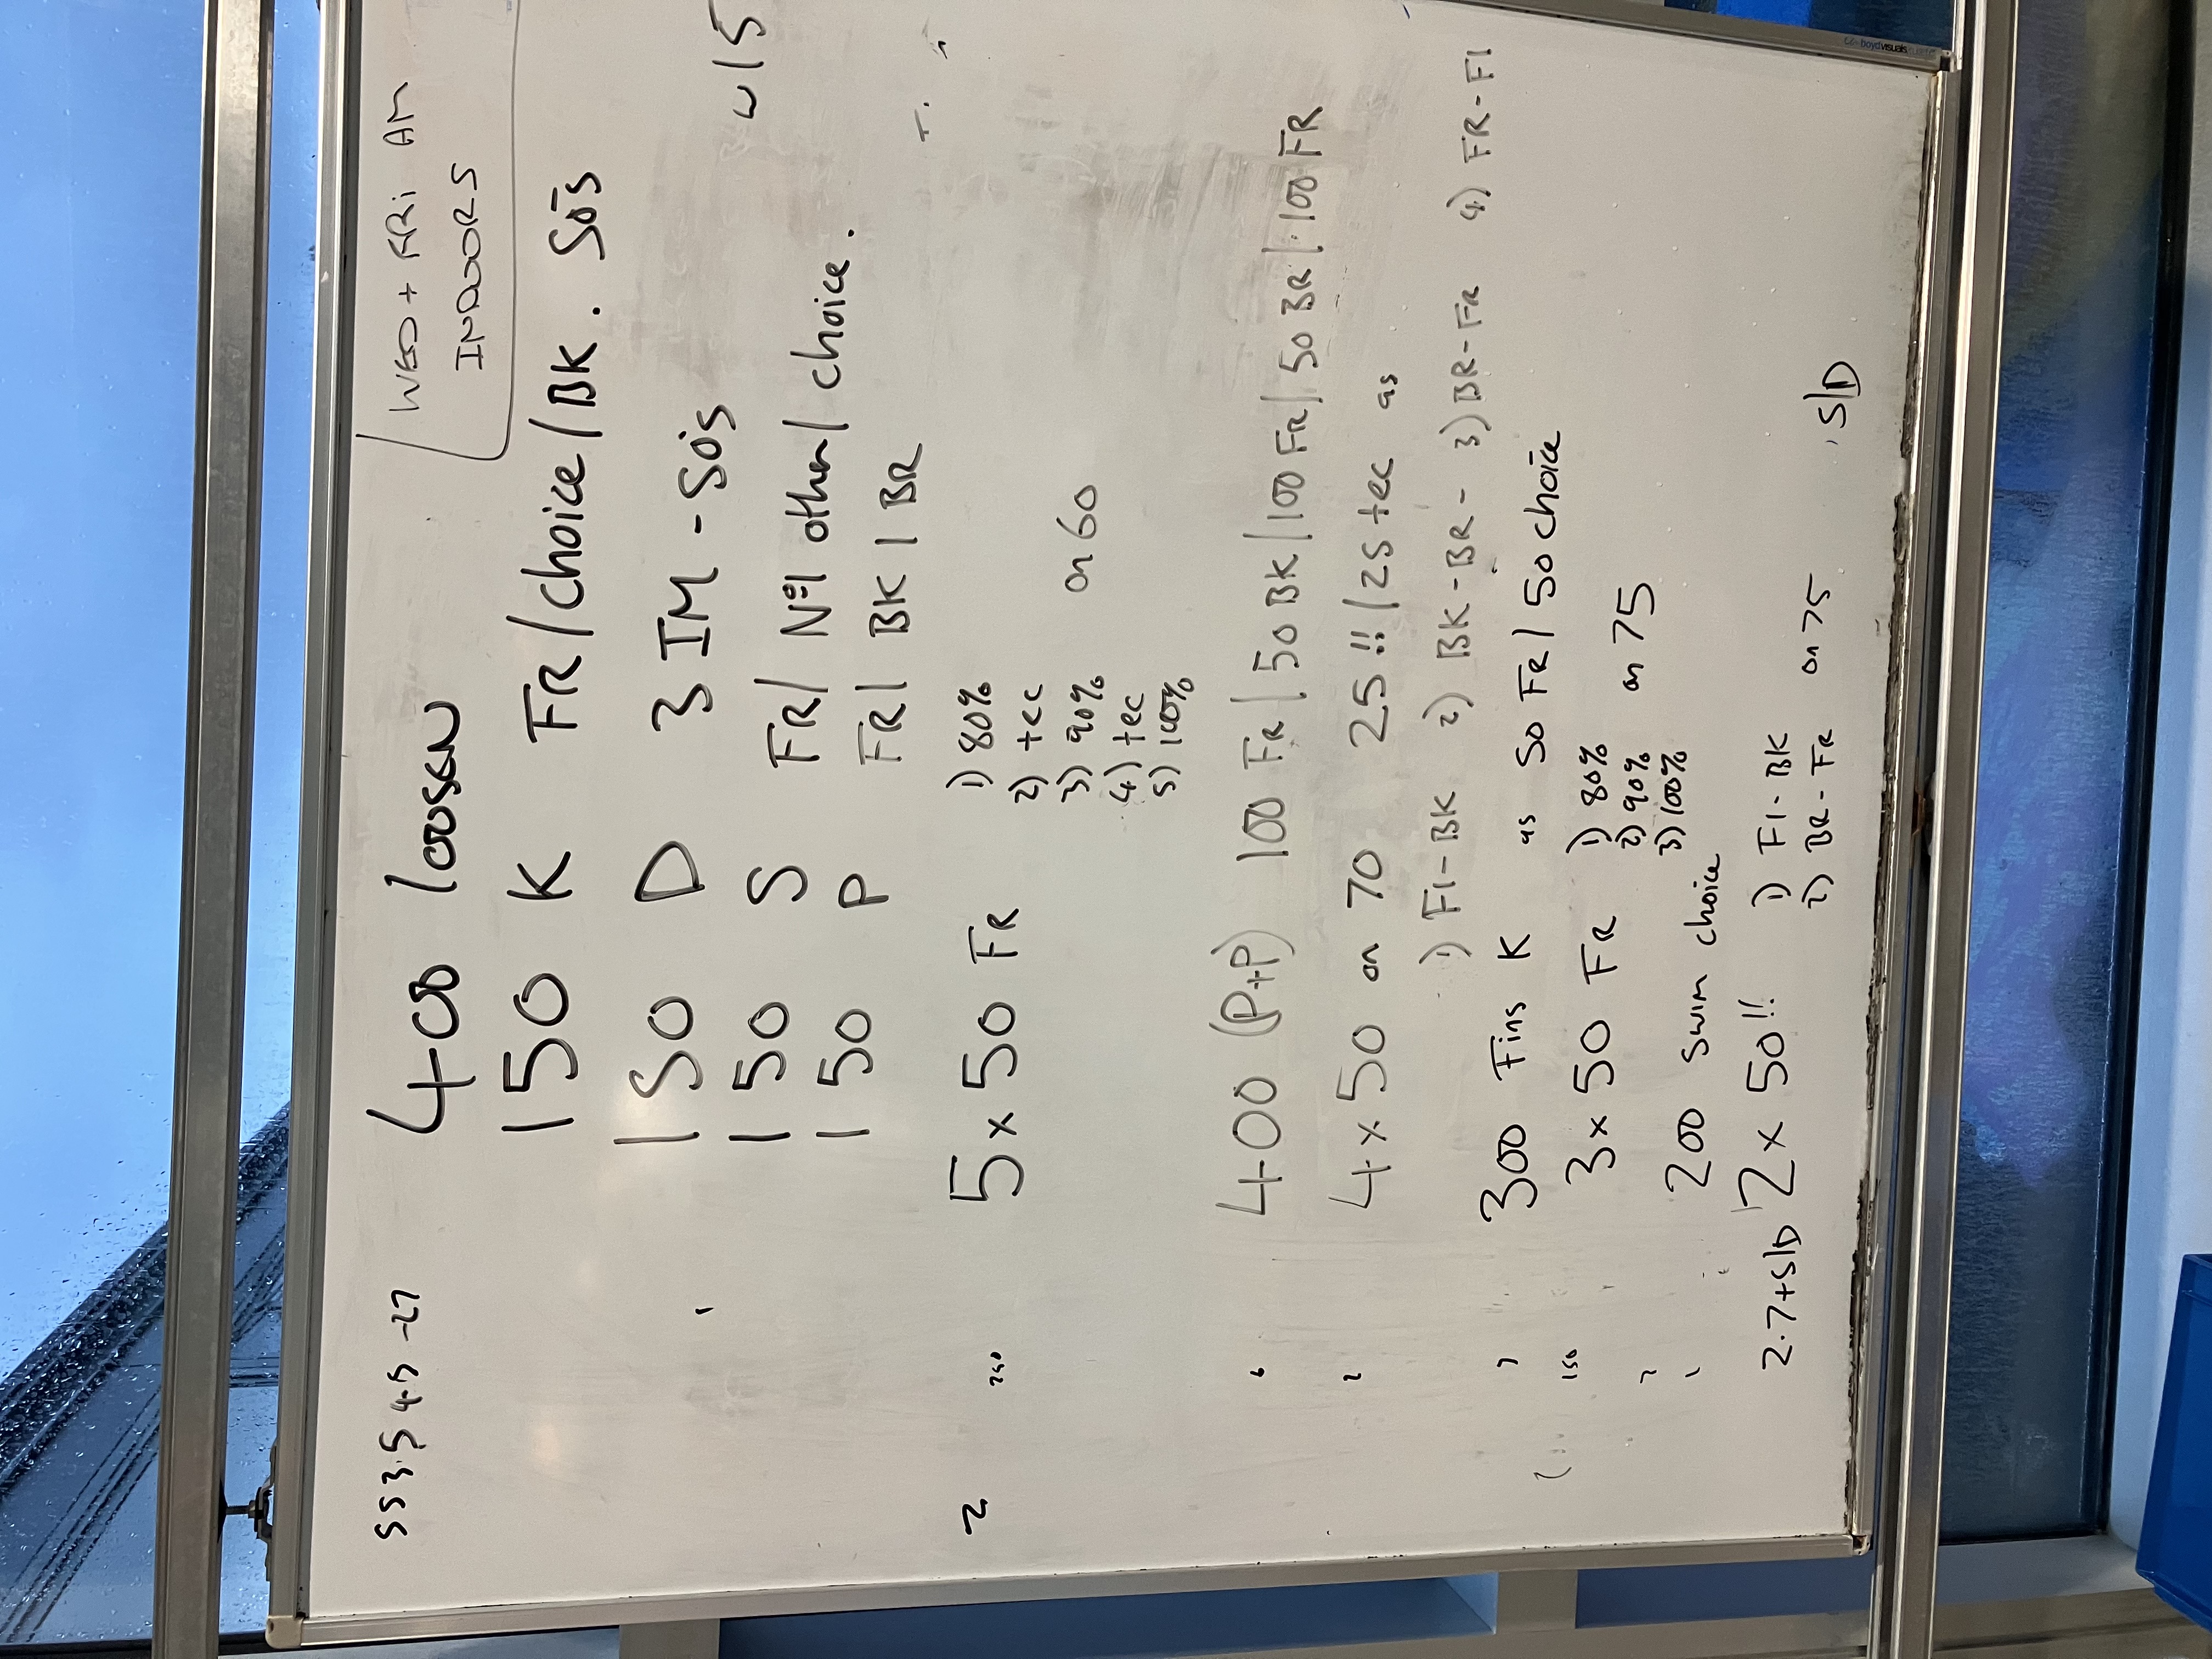 WED + FRi AM
INDOORS
400 loosen
150 K FR/choice/BK. 50s
150 D 3 IM - 50s
150 S FR/ Nº1 other/ choice.
150 P FR/ BK / BR
5 x 50 FR 1) 80%
2) tec
3) 90% on 60
4) tec
5) 100%
400 (P+P) 100 FR/50 BK/100 FR/50 BR/100 FR
4 x 50 on 70 25!!/25 tec as
1) FI-BK 2) BK-BR- 3) BR-FR 4) FR-FI
300 Fins K as 50 FR/50 choice
3 x 50 FR 1) 80%
2) 90% on 75
3) 100%
200 swim choice
2.7+S/D 2 x 50!! 1) FI-BK
2) BR-FR on 75 S/D
250
150
boydvisuals